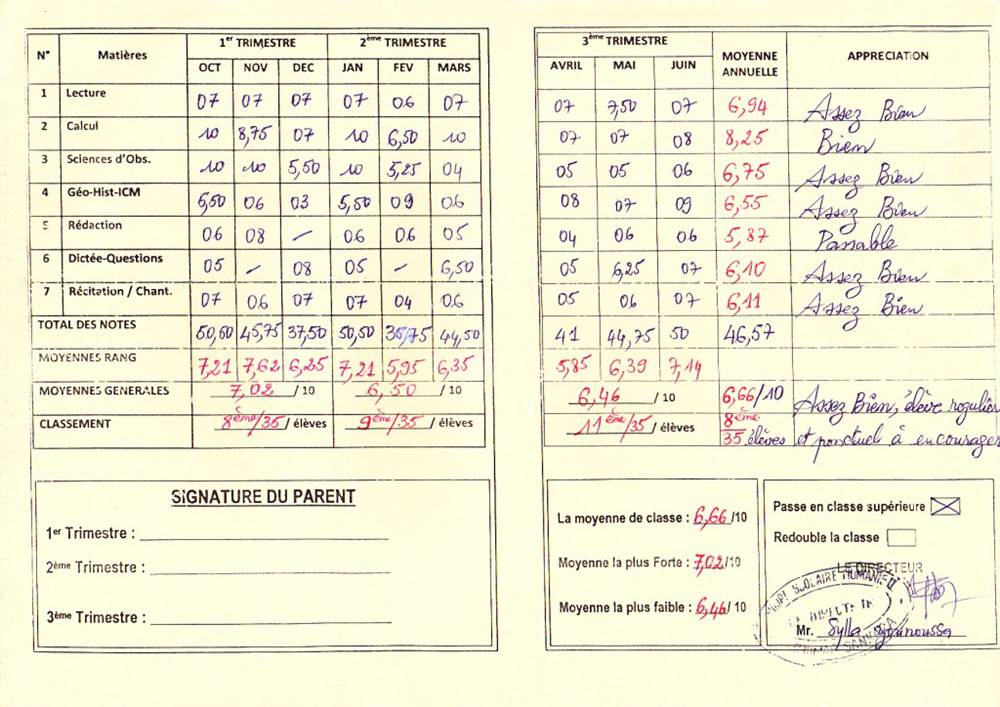 N° Matières 1er TRIMESTRE 2ème TRIMESTRE
OCT NOV DEC JAN FEV MARS
1 Lecture 07 07 07 07 06 07
2 Calcul 10 8,75 07 10 6,50 10
3 Sciences d'Obs. 10 10 5,50 10 5,25 04
4 Géo-Hist-ICM 5,50 06 03 5,50 09 06
5 Rédaction 06 08 — 06 06 05
6 Dictée-Questions 05 — 08 05 — 6,50
7 Récitation / Chant. 07 06 07 07 04 06
TOTAL DES NOTES 50,50 45,75 37,50 50,50 35,75 44,50
MOYENNES RANG 7,21 7,62 6,25 7,21 5,95 6,35
MOYENNES GENERALES 7,02 / 10 6,50 / 10
CLASSEMENT 8ème/35 / élèves 9ème/35 / élèves
SIGNATURE DU PARENT
1er Trimestre :
2ème Trimestre :
3ème Trimestre :
3ème TRIMESTRE MOYENNE ANNUELLE APPRECIATION
AVRIL MAI JUIN
07 7,50 07 6,94 Assez Bien
07 07 08 8,25 Bien
05 05 06 6,75 Assez Bien
08 07 09 6,55 Assez Bien
04 06 06 5,87 Passable
05 6,25 07 6,10 Assez Bien
05 06 07 6,11 Assez Bien
41 44,75 50 46,57
5,85 6,39 7,14
6,46 / 10 6,66/10 Assez Bien, élève régulier
11ème/35 / élèves 8ème 35 élèves et ponctuel à encourager
La moyenne de classe : 6,66/10
Moyenne la plus Forte : 7,02/10
Moyenne la plus faible : 6,46/10
Passe en classe supérieure
Redouble la classe
LE DIRECTEUR
SCOLAIRE HUMANIE II
Mr. Sylla